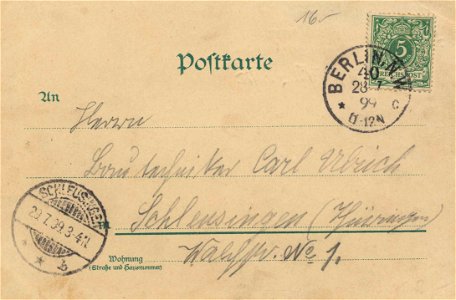 16.-
Postkarte
5
REICHSPOST
BERLIN, N.W.
40
28 7
99 c
11-12N
An
Herrn
Bautechniker Carl Ulrich
SCHLEUSINGEN
29.7.99.3-4N.
* * b
Schleusingen (Thüringen)
Wohnung
(Straße und Hausnummer)
No 1.